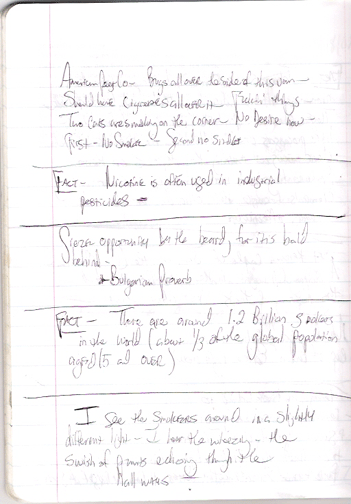 American Drug Co - Bongs all over the side of this van -
Should have cigarettes all over it Fuckin' things
Two cars are making on the corner - No Desire now -
First - No Smoke - Second no
FACT - Nicotine is often used in industrial
pesticides -
Seize opportunity by the beard, for it is bald
behind -
- Bulgarian Proverb
FACT - There are around 1.2 Billion smokers
in the world (about 1/3 of the global population
aged 15 and over)
I see the smokers around in a slightly
different light - I hear the wheezing - the
Swish of pants echoing through the
Hallways